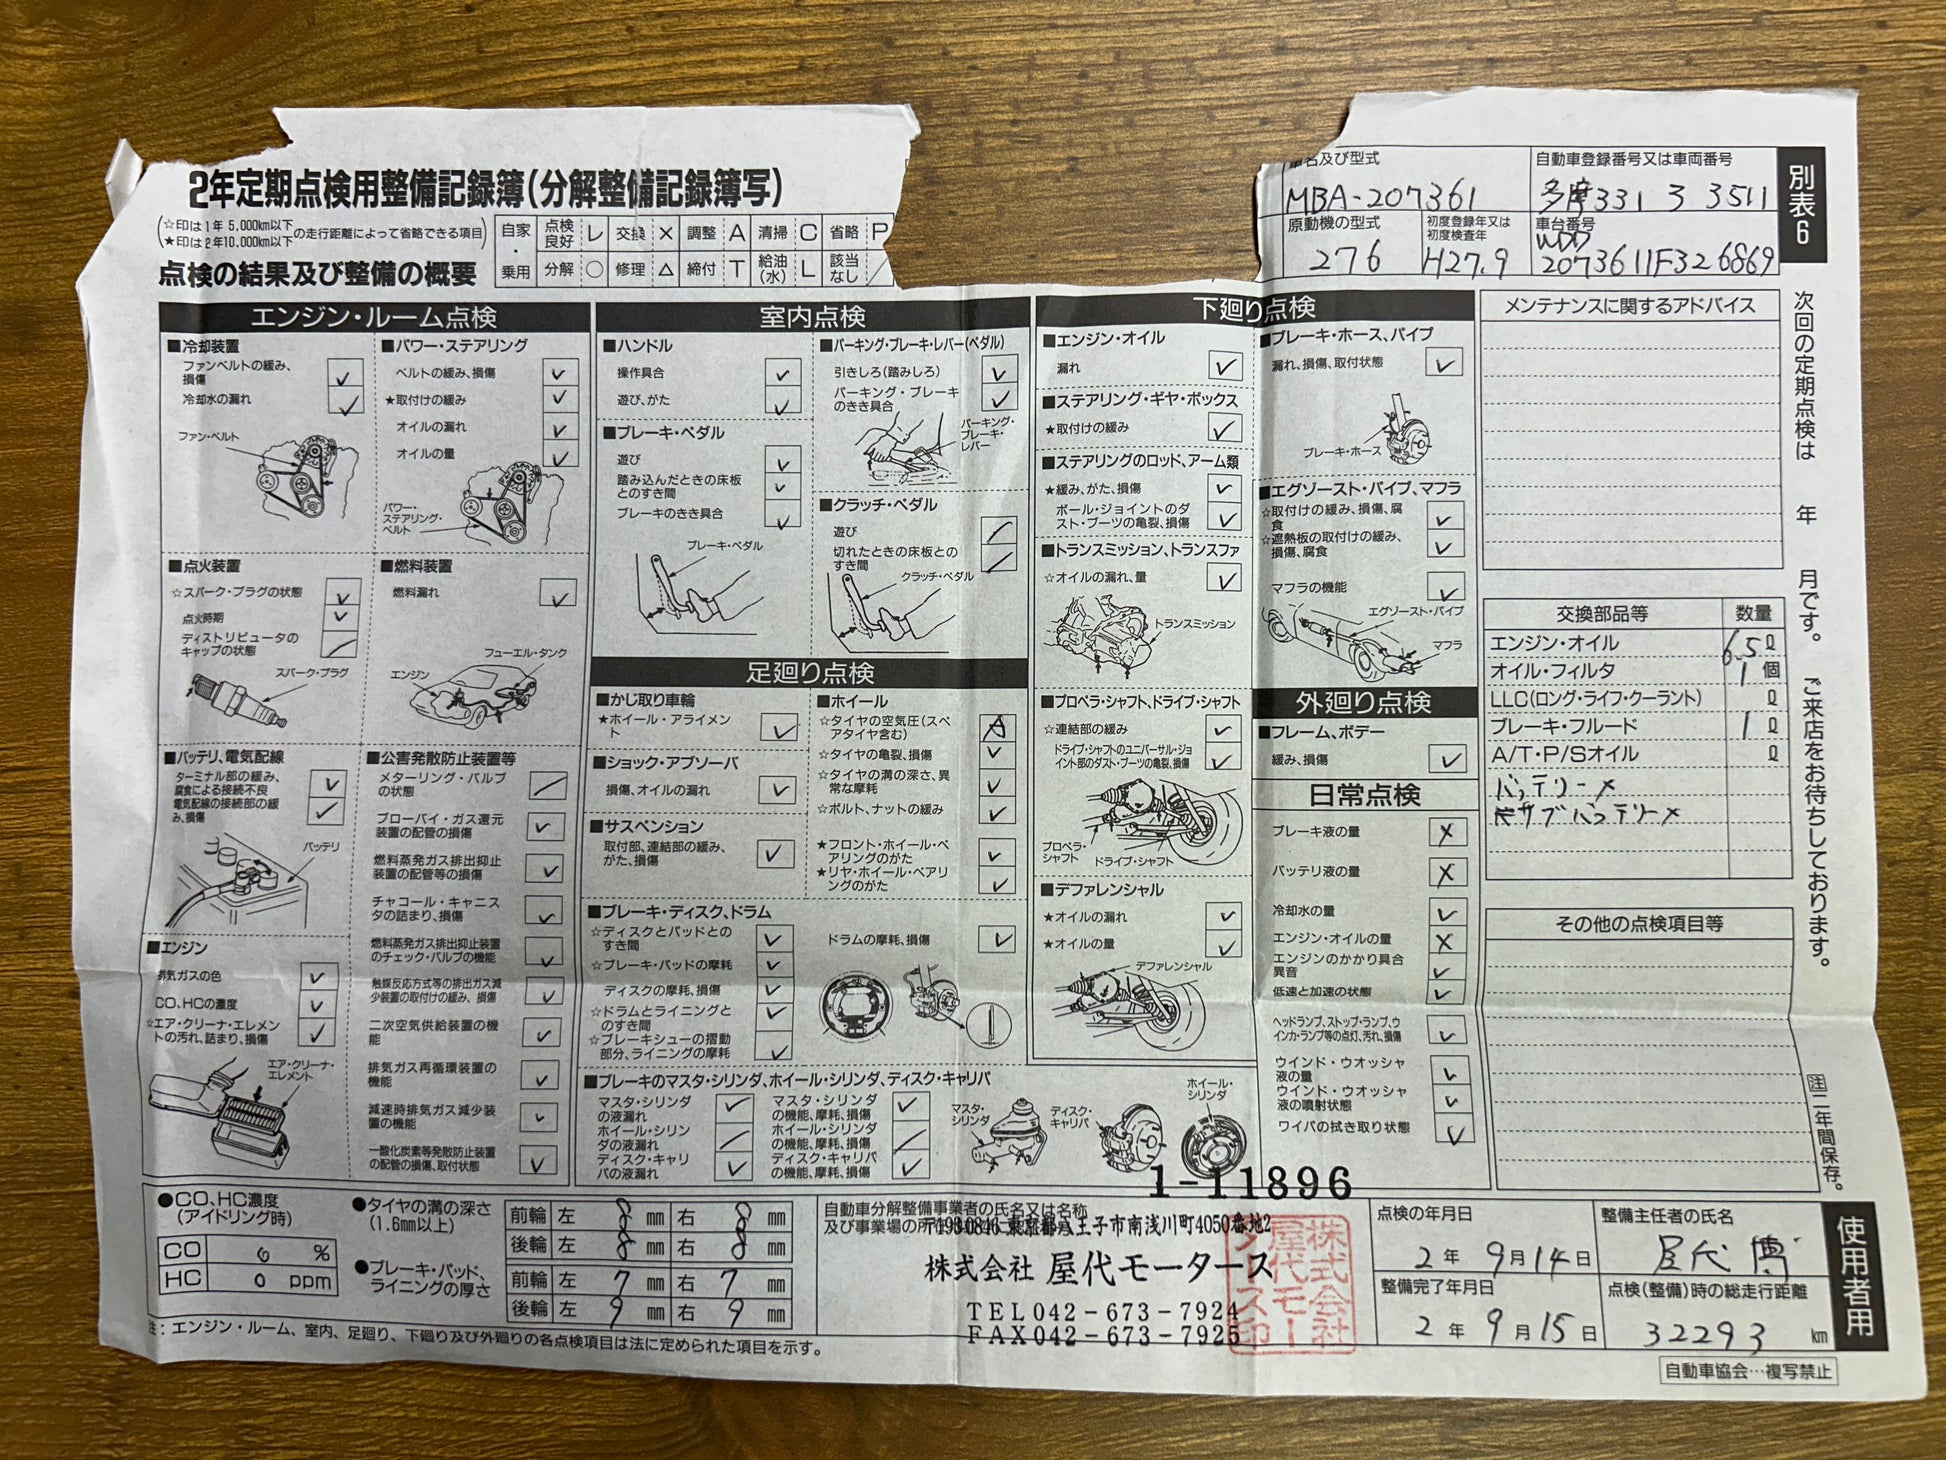 2年定期点検用整備記録簿(分解整備記録簿写)
(☆印は1年 5,000km以下
★印は2年10,000km以下 の走行距離によって省略できる項目)
点検の結果及び整備の概要
自家・乗用
点検良好 レ 交換 × 調整 A 清掃 C 省略 P
分解 ○ 修理 △ 締付 T 給油(水) L 該当なし ／
車名及び型式
MBA-207361
自動車登録番号又は車両番号
多摩331 ろ 3511
原動機の型式
276
初度登録年又は
初度検査年
H27.9
車台番号
WDD
2073611F326869
別表6
エンジン・ルーム点検
■冷却装置
ファンベルトの緩み、
損傷
冷却水の漏れ
ファン・ベルト
■パワー・ステアリング
ベルトの緩み、損傷
★取付けの緩み
オイルの漏れ
オイルの量
パワー・
ステアリング・
ベルト
■点火装置
☆スパーク・プラグの状態
点火時期
ディストリビュータの
キャップの状態
スパーク・プラグ
■燃料装置
燃料漏れ
フューエル・タンク
エンジン
■バッテリ、電気配線
ターミナル部の緩み、
腐食による接続不良
電気配線の接続部の緩
み、損傷
バッテリ
■公害発散防止装置等
メターリング・バルブ
の状態
ブローバイ・ガス還元
装置の配管の損傷
燃料蒸発ガス排出抑止
装置の配管等の損傷
チャコール・キャニス
タの詰まり、損傷
燃料蒸発ガス排出抑止装置
のチェック・バルブの機能
触媒反応方式等の排出ガス減
少装置の取付けの緩み、損傷
二次空気供給装置の機
能
排気ガス再循環装置の
機能
減速時排気ガス減少装
置の機能
一酸化炭素等発散防止装置
の配管の損傷、取付状態
■エンジン
排気ガスの色
CO、HCの濃度
☆エア・クリーナ・エレメン
トの汚れ、詰まり、損傷
エア・クリーナ・
エレメント
室内点検
■ハンドル
操作具合
遊び、がた
■ブレーキ・ペダル
遊び
踏み込んだときの床板
とのすき間
ブレーキのきき具合
ブレーキ・ペダル
■パーキング・ブレーキ・レバー(ペダル)
引きしろ(踏みしろ)
パーキング・ブレーキ
のきき具合
パーキング・
ブレーキ・
レバー
■クラッチ・ペダル
遊び
切れたときの床板との
すき間
クラッチ・ペダル
足廻り点検
■かじ取り車輪
★ホイール・アライメン
ト
■ショック・アブソーバ
損傷、オイルの漏れ
■サスペンション
取付部、連結部の緩み、
がた、損傷
■ホイール
☆タイヤの空気圧(スペ
アタイヤ含む) A
☆タイヤの亀裂、損傷
☆タイヤの溝の深さ、異
常な摩耗
☆ボルト、ナットの緩み
★フロント・ホイール・ベ
アリングのがた
★リヤ・ホイール・ベアリ
ングのがた
■ブレーキ・ディスク、ドラム
☆ディスクとパッドとの
すき間
☆ブレーキ・パッドの摩耗
ディスクの摩耗、損傷
☆ドラムとライニングと
のすき間
☆ブレーキシューの摺動
部分、ライニングの摩耗
ドラムの摩耗、損傷
■ブレーキのマスタ・シリンダ、ホイール・シリンダ、ディスク・キャリパ
マスタ・シリンダ
の液漏れ
ホイール・シリン
ダの液漏れ
ディスク・キャリ
パの液漏れ
マスタ・シリンダ
の機能、摩耗、損傷
ホイール・シリンダ
の機能、摩耗、損傷
ディスク・キャリパ
の機能、摩耗、損傷
マスタ・
シリンダ
ディスク・
キャリパ
ホイール・
シリンダ
下廻り点検
■エンジン・オイル
漏れ
■ステアリング・ギヤ・ボックス
★取付けの緩み
■ステアリングのロッド、アーム類
★緩み、がた、損傷
ボール・ジョイントのダ
スト・ブーツの亀裂、損傷
■トランスミッション、トランスファ
☆オイルの漏れ、量
トランスミッション
■プロペラ・シャフト、ドライブ・シャフト
☆連結部の緩み
ドライブ・シャフトのユニバーサル・ジョ
イント部のダスト・ブーツの亀裂、損傷
プロペラ・
シャフト
ドライブ・シャフト
■デファレンシャル
★オイルの漏れ
★オイルの量
デファレンシャル
■ブレーキ・ホース、パイプ
漏れ、損傷、取付状態
ブレーキ・ホース
■エグゾースト・パイプ、マフラ
☆取付けの緩み、損傷、腐
食
☆遮熱板の取付けの緩み、
損傷、腐食
マフラの機能
エグゾースト・パイプ
マフラ
外廻り点検
■フレーム、ボデー
緩み、損傷
日常点検
ブレーキ液の量 ×
バッテリ液の量 ×
冷却水の量
エンジン・オイルの量 ×
エンジンのかかり具合
異音
低速と加速の状態
ヘッドランプ、ストップ・ランプ、ウ
インカ・ランプ等の点灯、汚れ、損傷
ウインド・ウオッシャ
液の量
ウインド・ウオッシャ
液の噴射状態
ワイパの拭き取り状態
メンテナンスに関するアドバイス
交換部品等 数量
エンジン・オイル 6.5 ℓ
オイル・フィルタ 1 個
LLC(ロング・ライフ・クーラント) ℓ
ブレーキ・フルード 1 ℓ
A/T・P/Sオイル ℓ
バッテリー×
サブバッテリー×
その他の点検項目等
次回の定期点検は 年 月です。 ご来店をお待ちしております。
注 二年間保存。
●CO、HC濃度
(アイドリング時)
CO 0 %
HC 0 ppm
●タイヤの溝の深さ
(1.6mm以上)
前輪 左 8 mm 右 8 mm
後輪 左 8 mm 右 8 mm
●ブレーキ・パッド、
ライニングの厚さ
前輪 左 7 mm 右 7 mm
後輪 左 9 mm 右 9 mm
注：エンジン・ルーム、室内、足廻り、下廻り及び外廻りの各点検項目は法に定められた項目を示す。
1-11896
自動車分解整備事業者の氏名又は名称
及び事業場の所
〒193-0846 東京都八王子市南浅川町4050番地2
株式会社 屋代モータース
TEL042-673-7924
FAX042-673-7925
株式会社屋代モータース印
点検の年月日
2年 9月14日
整備完了年月日
2年 9月15日
整備主任者の氏名
屋代 博
点検(整備)時の総走行距離
32293 km
使用者用
自動車協会…複写禁止